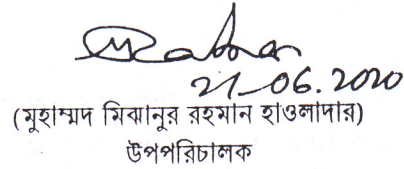 21-06.2020
(মুহাম্মদ মিঝানুর রহমান হাওলাদার)
উপপরিচালক